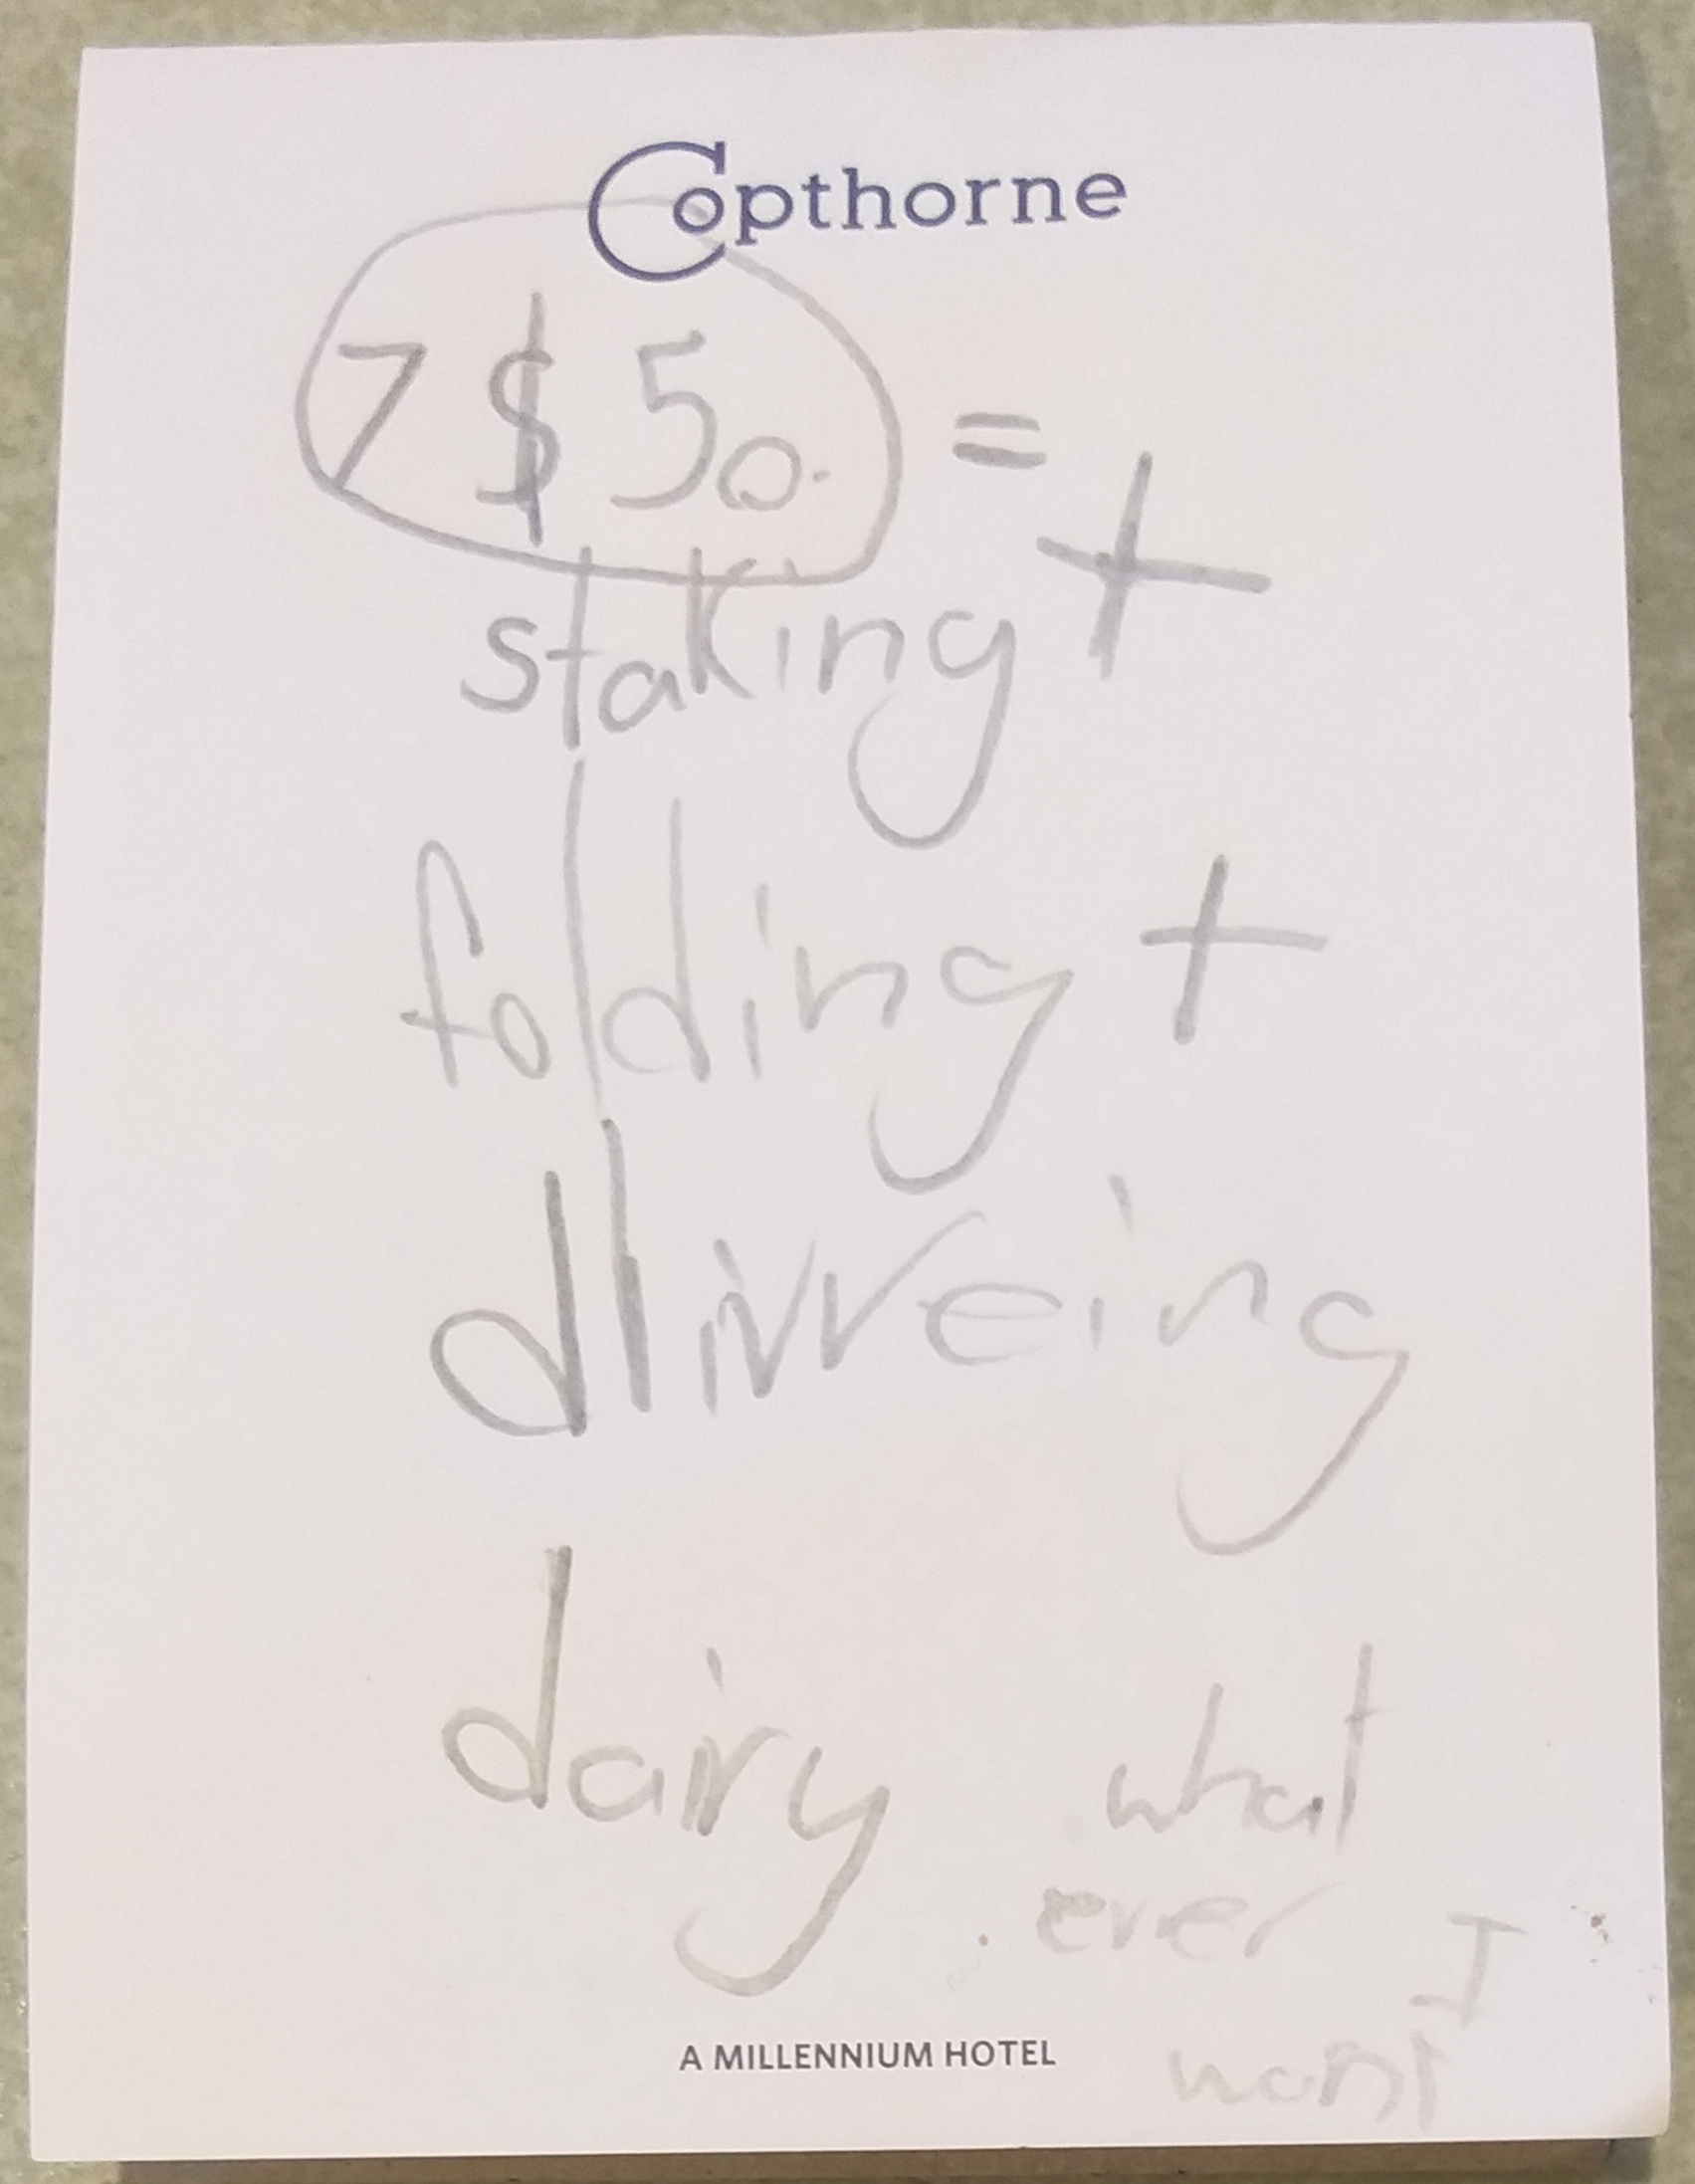 Copthorne
7 $ 50. =
staking +
folding +
dlivreing
dairy
what
ever I
want
A MILLENNIUM HOTEL